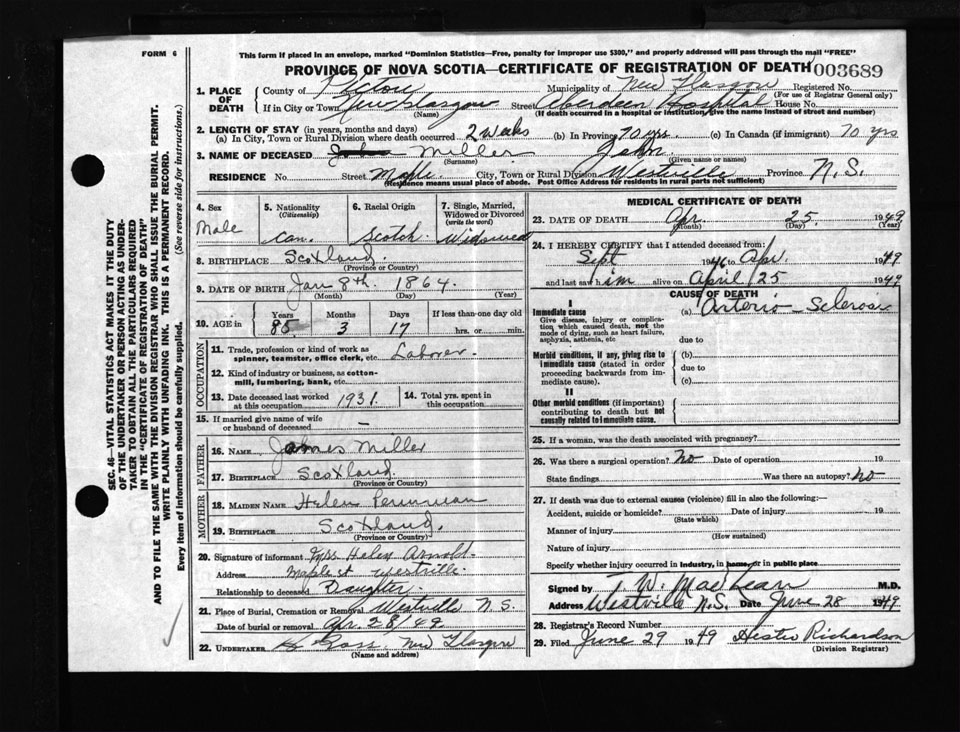 FORM 6
This form if placed in an envelope, marked "Dominion Statistics—Free, penalty for improper use $300," and properly addressed will pass through the mail "FREE"
PROVINCE OF NOVA SCOTIA—CERTIFICATE OF REGISTRATION OF DEATH 003689
1. PLACE OF DEATH
County of Pictou Municipality of New Glasgow Registered No.
(For use of Registrar General only)
If in City or Town New Glasgow Street Aberdeen Hospital House No.
(Name) (If death occurred in a hospital or institution, give the name instead of street and number)
2. LENGTH OF STAY (in years, months and days)
(a) In City, Town or Rural Division where death occurred 2 weeks (b) In Province 70 yrs. (c) In Canada (if immigrant) 70 yrs
3. NAME OF DECEASED Miller John
(Surname) (Given name or names)
RESIDENCE No. Street Maple City, Town or Rural Division Westville Province N.S.
(Residence means usual place of abode. Post Office Address for residents in rural parts not sufficient)
4. Sex Male
5. Nationality (Citizenship) Can.
6. Racial Origin Scotch
7. Single, Married, Widowed or Divorced (write the word) Widowed
8. BIRTHPLACE Scotland
(Province or Country)
9. DATE OF BIRTH Jan 8th. 1864.
(Month) (Day) (Year)
10. AGE in Years Months Days If less than one day old
85 3 17 hrs. or min.
OCCUPATION
11. Trade, profession or kind of work as spinner, teamster, office clerk, etc. Laborer.
12. Kind of industry or business, as cotton-mill, lumbering, bank, etc.
13. Date deceased last worked at this occupation 1931. 14. Total yrs. spent in this occupation
15. If married give name of wife or husband of deceased —
FATHER
16. NAME James Miller
17. BIRTHPLACE Scotland.
(Province or Country)
MOTHER
18. MAIDEN NAME Helen
19. BIRTHPLACE Scotland.
(Province or Country)
20. Signature of informant Mrs. Helen Arnold.
Address Maple st Westville.
Relationship to deceased Daughter
21. Place of Burial, Cremation or Removal Westville N.S.
Date of burial or removal Apr. 28/49
22. UNDERTAKER Ross New Glasgow
(Name and address)
MEDICAL CERTIFICATE OF DEATH
23. DATE OF DEATH Apr. 25 1949
(Month) (Day) (Year)
24. I HEREBY CERTIFY that I attended deceased from:
Sept 1946 to Apr. 1949
and last saw him alive on April 25 1949
CAUSE OF DEATH
I
Immediate cause (a) Arterio - Sclerosis
Give disease, injury or complication which caused death, not the mode of dying, such as heart failure, asphyxia, asthenia, etc
due to
Morbid conditions, if any, giving rise to immediate cause (stated in order proceeding backwards from immediate cause).
(b)
due to
(c)
II
Other morbid conditions (if important) contributing to death but not causally related to immediate cause.
25. If a woman, was the death associated with pregnancy?
26. Was there a surgical operation? No Date of operation 19
State findings Was there an autopsy? No
27. If death was due to external causes (violence) fill in also the following:—
Accident, suicide or homicide? Date of injury 19
(State which)
Manner of injury
(How sustained)
Nature of injury
Specify whether injury occurred in industry, in home, or in public place
Signed by T. W. MacLean M.D.
Address Westville N.S. Date June 28 1949
28. Registrar's Record Number
29. Filed June 29 1949 Hester Richardson
(Division Registrar)
SEC. 46—VITAL STATISTICS ACT MAKES IT THE DUTY
OF THE UNDERTAKER OR PERSON ACTING AS UNDER-
TAKER TO OBTAIN ALL THE PARTICULARS REQUIRED
IN THE "CERTIFICATE OF REGISTRATION OF DEATH"
AND TO FILE THE SAME WITH THE DIVISION REGISTRAR WHO SHALL ISSUE THE BURIAL PERMIT.
WRITE PLAINLY WITH UNFADING INK. THIS IS A PERMANENT RECORD.
Every item of information should be carefully supplied. (See reverse side for instructions.)